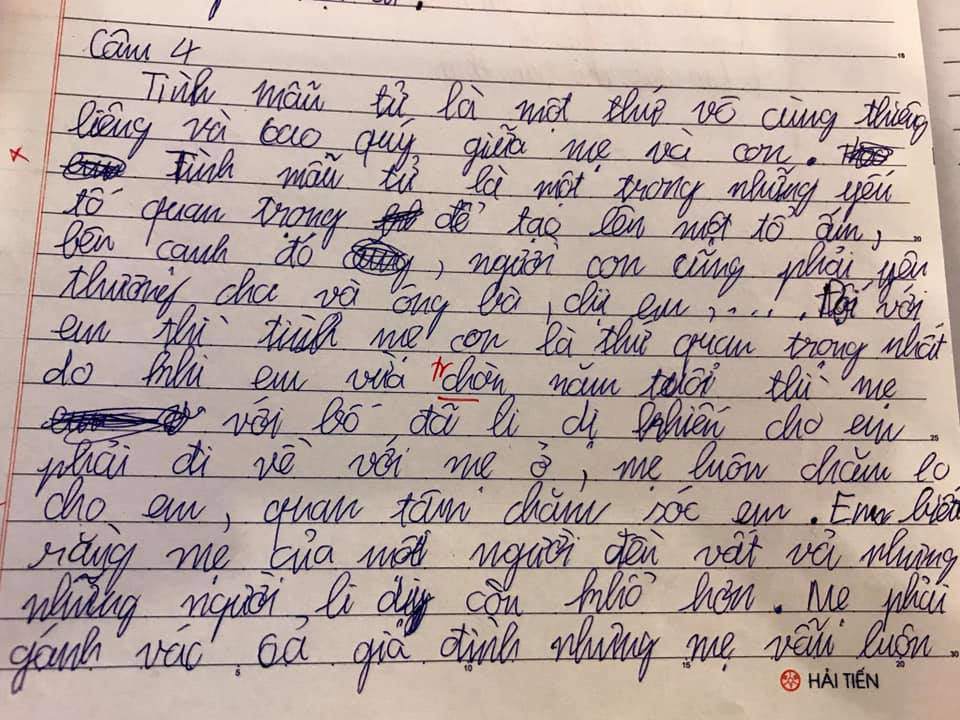 Câu 4
Tình mẫu tử là một thứ vô cùng thiêng
liêng và bao quý giữa mẹ và con.
Tình mẫu tử là một trong những yếu
tố quan trong để tạo lên một tổ ấm,
bên cạnh đó, người con cũng phải yêu
thương cha và ông bà, chị em,.... Đối với
em thì tình mẹ con là thứ quan trọng nhất
do khi em vừa tr chòn năm tuổi thì mẹ
với bố đã li dị khiến cho em
phải đi về với mẹ ở, mẹ luôn chăm lo
cho em, quan tâm chăm sóc em. Em biết
rằng mẹ của một người đều vất vả nhưng
những người li dị còn khổ hơn. Mẹ phải
gánh vác cả gia đình nhưng mẹ vẫn luôn
HẢI TIẾN
5 10 15 20 30
20
25